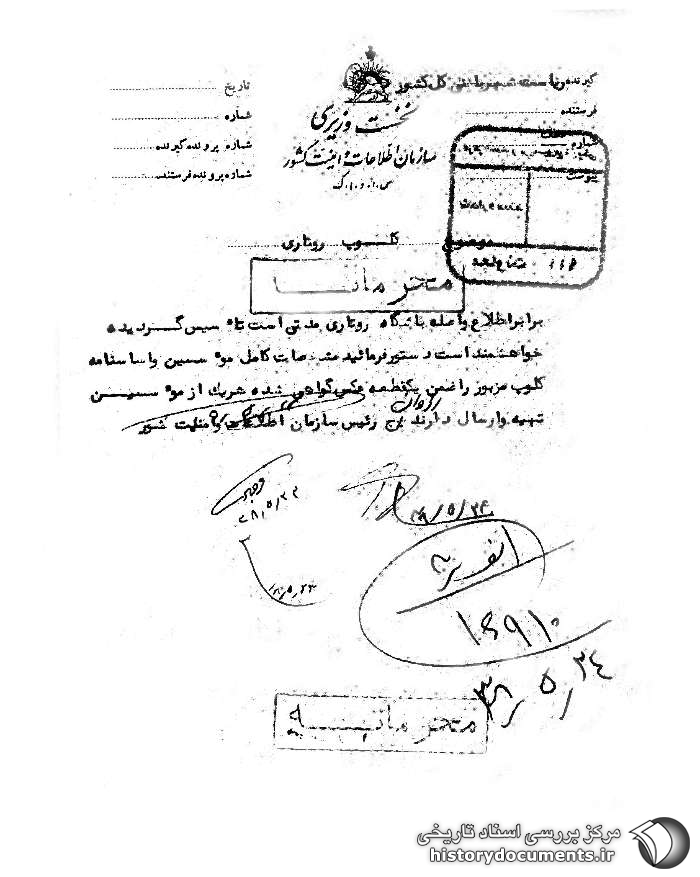 گیرنده ریاست شهربانی کل کشور
فرستنده
شماره
پیوست
نخست وزیری
سازمان اطلاعات و امنیت کشور
س.ا.و.ا.ک
تاریخ
شماره
شماره پرونده گیرنده
شماره پرونده فرستنده
موضوع کلوپ روتاری
محرمانه
برابر اطلاع واصله باشگاه روتاری مدتی است تأسیس گردیده
خواهشمند است دستور فرمائید مشخصات کامل مؤسسین و اساسنامه
کلوپ مزبور را ضمن یکقطعه عکس گواهی شده هریک از مؤسسین
تهیه و ارسال دارند رئیس سازمان اطلاعات و امنیت کشور
۳۸/۵/۲۴
۱۶۹۱۰
۳۸/۵/۲۴
محرمانه
مرکز بررسی اسناد تاریخی
historydocuments.ir